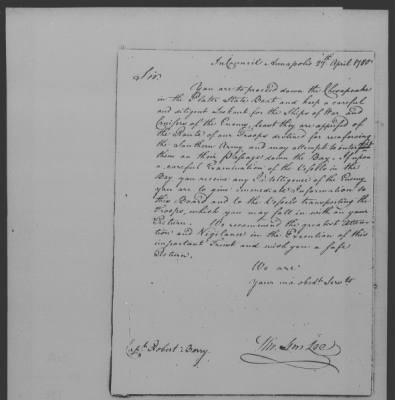 In Council Annapolis 27th April 1780
Sir.
You are to proceed down the Chesapeake
in the Plater State Boat and keep a careful
and diligent Lookout for the Ships of War and
Cruizers of the Enemy, least they are apprised of
the Route of our Troops destined for reinforcing
the Southern Army and may attempt to intercept
them on their Passage down the Bay. If upon
a careful Examination of the Vessels in the
Bay you receive any Intelligence of the Enemy
you are to give immediate Information to
this Board and to the Vessels transporting the
Troops, which you may fall in with on your
Return. We recommend the greatest Atten-
tion and Vigilance in the Execution of this
important Trust and wish you a safe
Return.
We are
Your mo obedt Servts
Capt. Robert Berry
Tho. Sim Lee